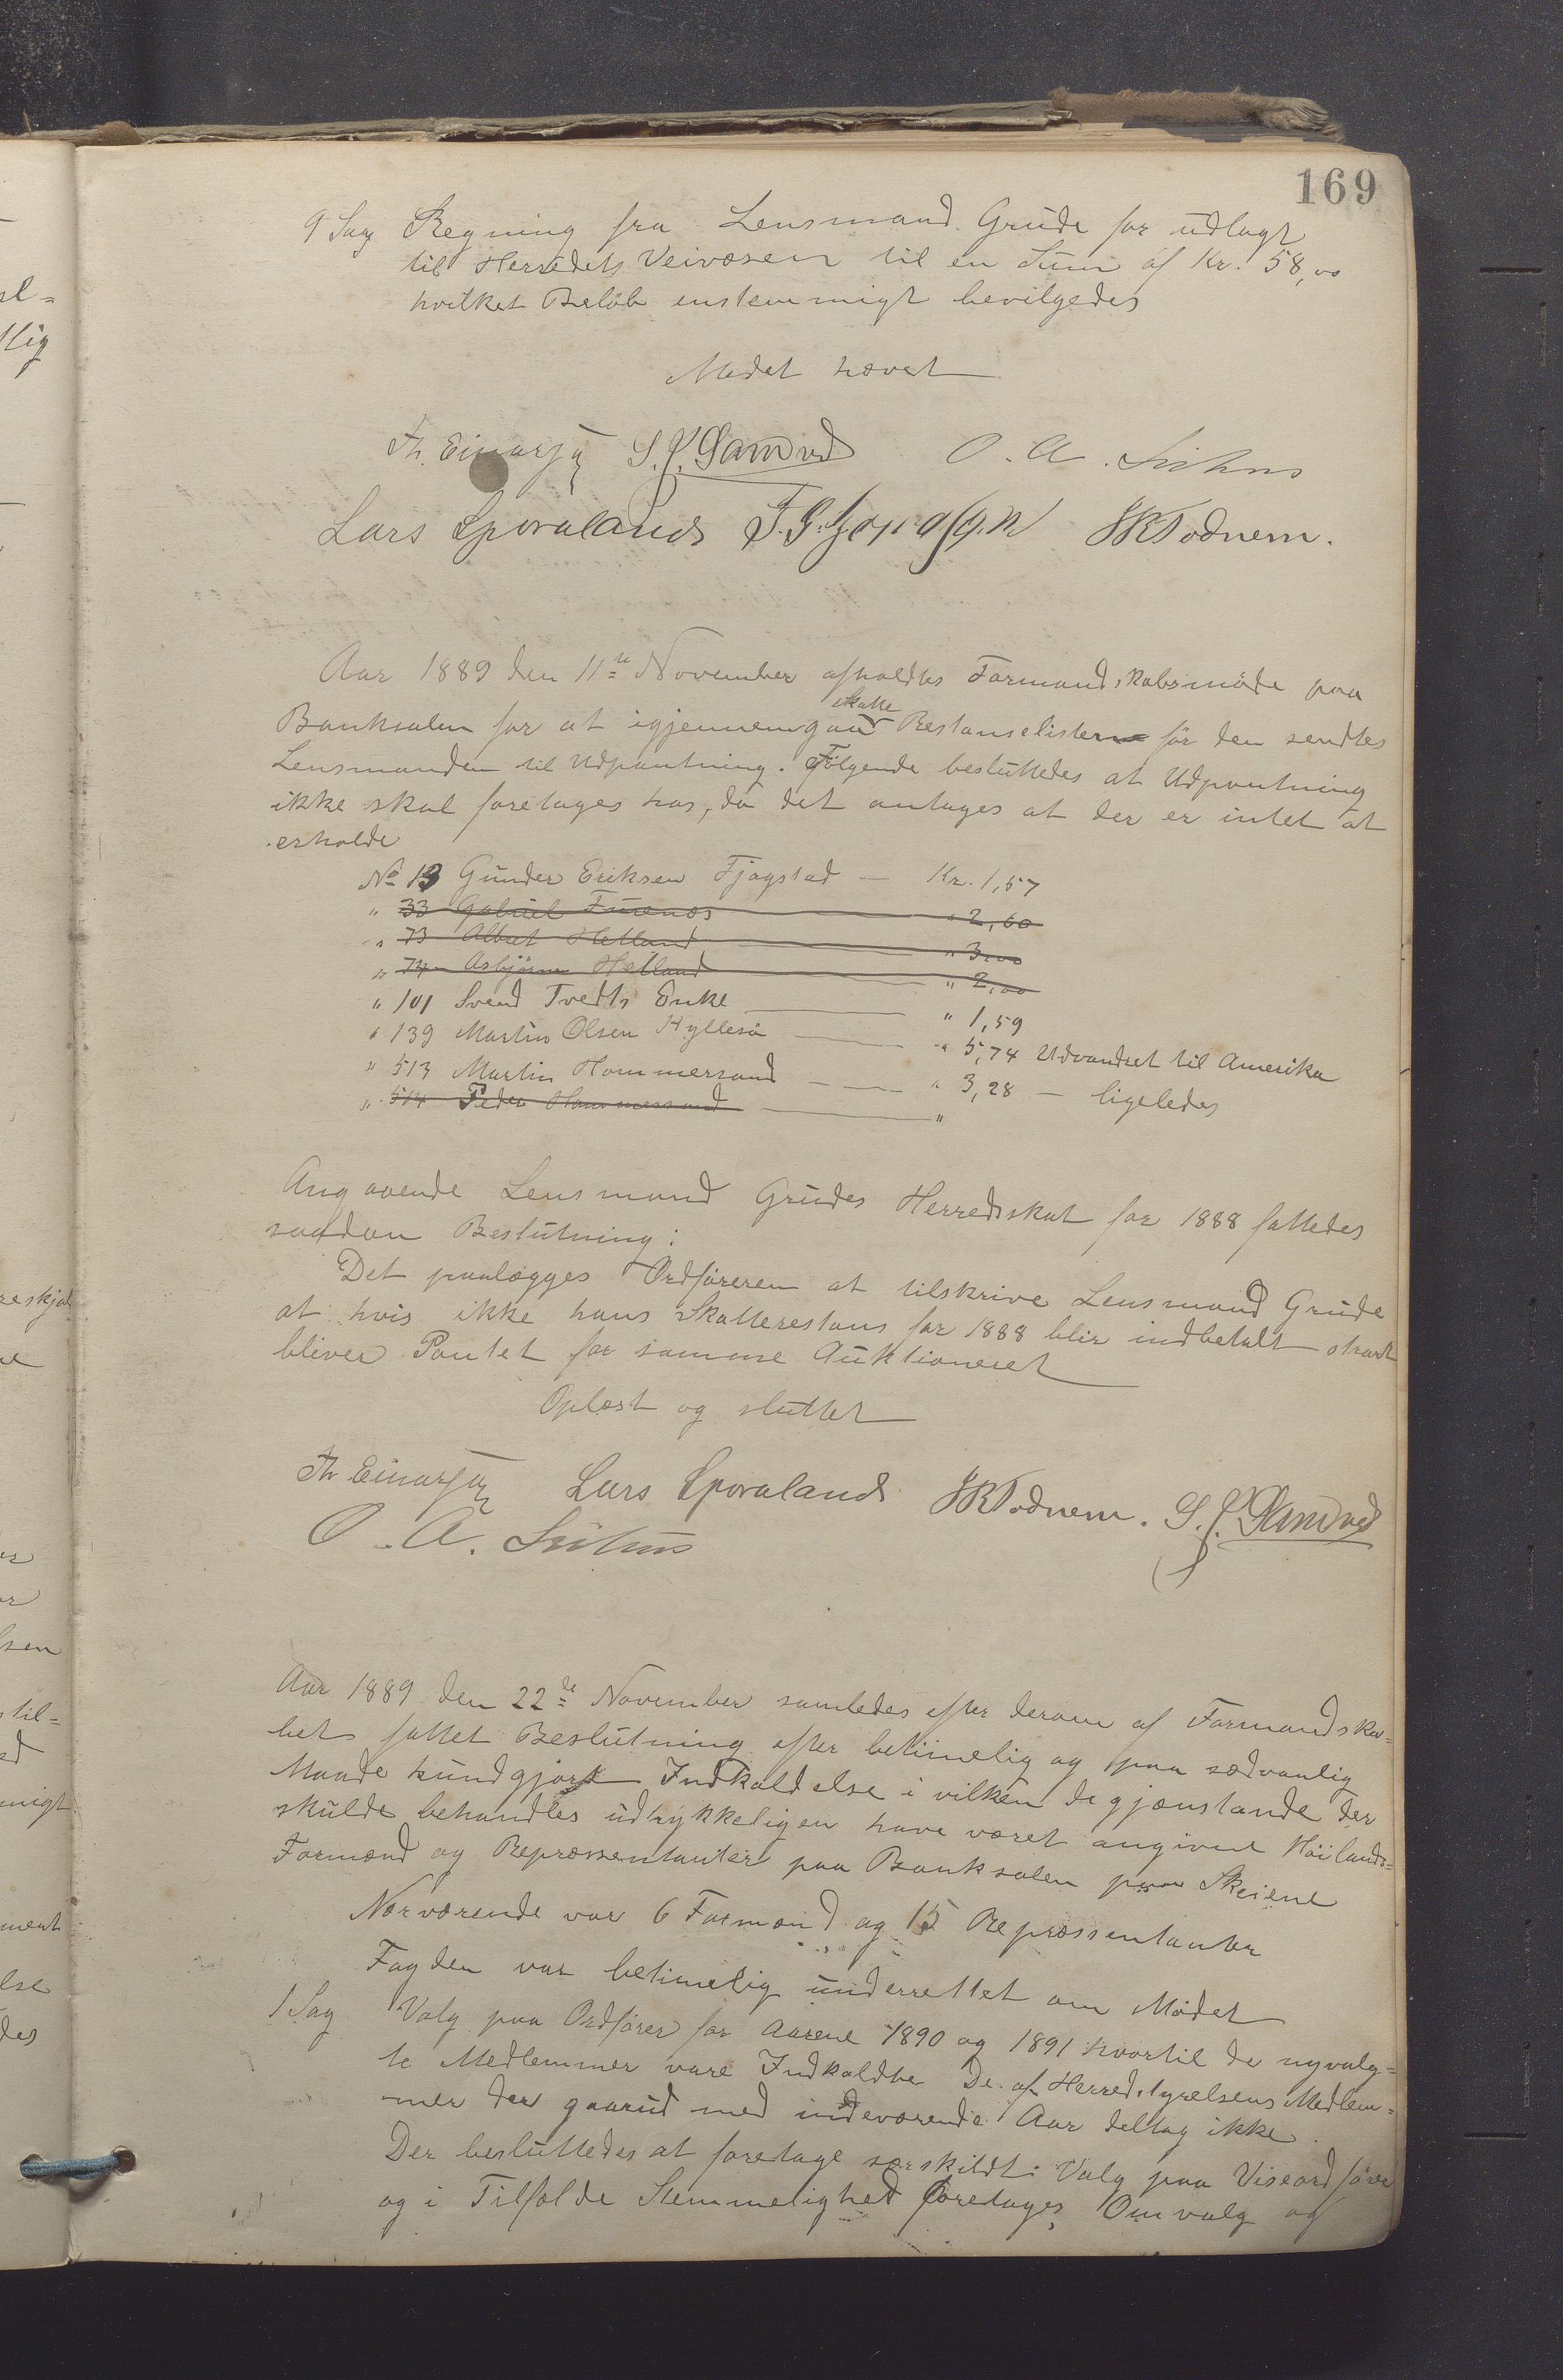 169
9 Sag Regning fra Lensmand Grude for udlagt
til Herredets Veivæsen til en Sum af Kr. 58,00
hvilket Beløb enstemmigt bevilgedes
Mødet hævet
Th. Einarsen S. J. Sandved O. A.
Lars Sporaland JRTodnem.
Aar 1889 den 11te November afholdtes Formandskabsmøde paa
Banksalen for at igjennemgaa skatte Restanselisten før den sendtes
Lensmanden til Udpantning. Følgende besluttedes at Udpantning
ikke skal foretages hos, da det antages at der er intet at
erholde
No 13 Gunder Eriksen Fjogstad — Kr. 1,57
" 33 Gabriel Furenes " 2,60
" 73 Albret Hetland " 3,00
" 74 Asbjörn Hetland " 2,00
" 101 Svend Tvedts Enke " 1,59
" 139 Martin Olsen Kyllesø " 5,74 Udvandret til Amerika
" 513 Martin Hommersand " 3,28 — ligeledes
" 514 Peder Hommersand "
Angaaende Lensmand Grudes Herredsskat for 1888 fattedes
saadan Beslutning:
Det paalægges Ordføreren at tilskrive Lensmand Grude
at hvis ikke hans Skatterestans for 1888 blir indbetalt straks
bliver Pantet for samme Auktioneret
Oplæst og sluttet
Th Einarsen Lars Sporaland JRTodnem. S. J. Sandved
O. A.
Aar 1889 den 22de November samledes efter derom af Formandska=
bet fattet Beslutning efter betimelig og paa sædvanlig
Maade kundgjort Indkaldelse i vilken de gjenstande der
skulde behandles udtrykkeligen have været angivet Höilands=
Formænd og Repræssentanter paa Banksalen paa Skeiene
Nærværende var 6 Formænd og 15 Repræssentanter
Fogden var betimelig underrettet om Mødet
1 Sag Valg paa Ordfører for Aarene 1890 og 1891 hvortil de nyvalg=
te Medlemmer vare Indkaldte De af Herredstyrelsens Medlem=
mer der gaarud med indeværende Aar deltog ikke.
Der besluttedes at foretage særskildt Valg paa Viseordfører
og i Tilfælde Stemmelighed foretages Omvalg og